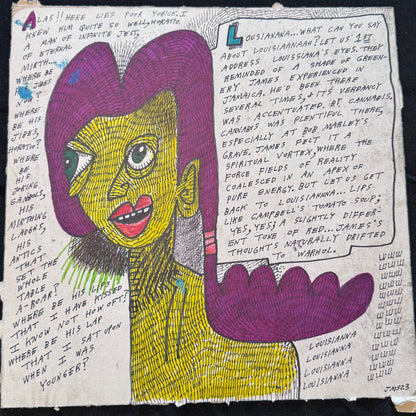 ALAS!! HERE LIES POOR YORICK. I
KNEW HIM QUITE SO WELL, HORATIO.
A MAN OF INFINITE JEST,
OF ETERNAL
MIRTH...
WHERE BE
HIS JIBES
NOW?
WHERE
BE HIS
JIBES,
HORATIO?
WHERE
BE HIS
JOKING
GAMBOLS,
HIS
MIRTHING
LAUGHS,
HIS
ANTICS
THAT
SET THE
WHOLE
TABLE
A-ROAR?
WHERE BE HIS LIPS
THAT I HAVE KISSED
I KNOW NOT HOW OFT!
WHERE BE HIS LAP
THAT I SAT UPON
WHEN I WAS
YOUNGER?
LOUSIANNA... WHAT CAN YOU SAY
ABOUT LOUISIAANAAH? LET US 1ST
ADDRESS LOUSSIANA'S EYES. THEY
REMINDED OF A SHADE OF GREEN-
ERY JAMES EXPERIENCED IN
JAMAICA. HE'D BEEN THERE
SEVERAL TIMES, & IT'S VERDANCY
WAS ACCENTUATED BY CANNABIS.
CANNABIS WAS PLENTIFUL THERE,
ESPECIALLY AT BOB MARLEY'S
GRAVE. JAMES FELT IT A
SPIRITUAL VORTEX, WHERE THE
FORCE FIELDS OF REALITY
COALESCED IN AN APEX OF
PURE ENERGY. BUT LET US GET
BACK TO LOUISIANNNA... LIPS
LIKE CAMPBELL'S TOMATO SOUP;
YES, YES; A SLIGHTLY DIFFER-
ENT TONE OF RED... JAMES'S
THOUGHTS NATURALLY DRIFTED
TO WARHOL.
LOUISIANNA
LOUISIANNA
LOUISIANNA
LOUISIANNA
JMS23